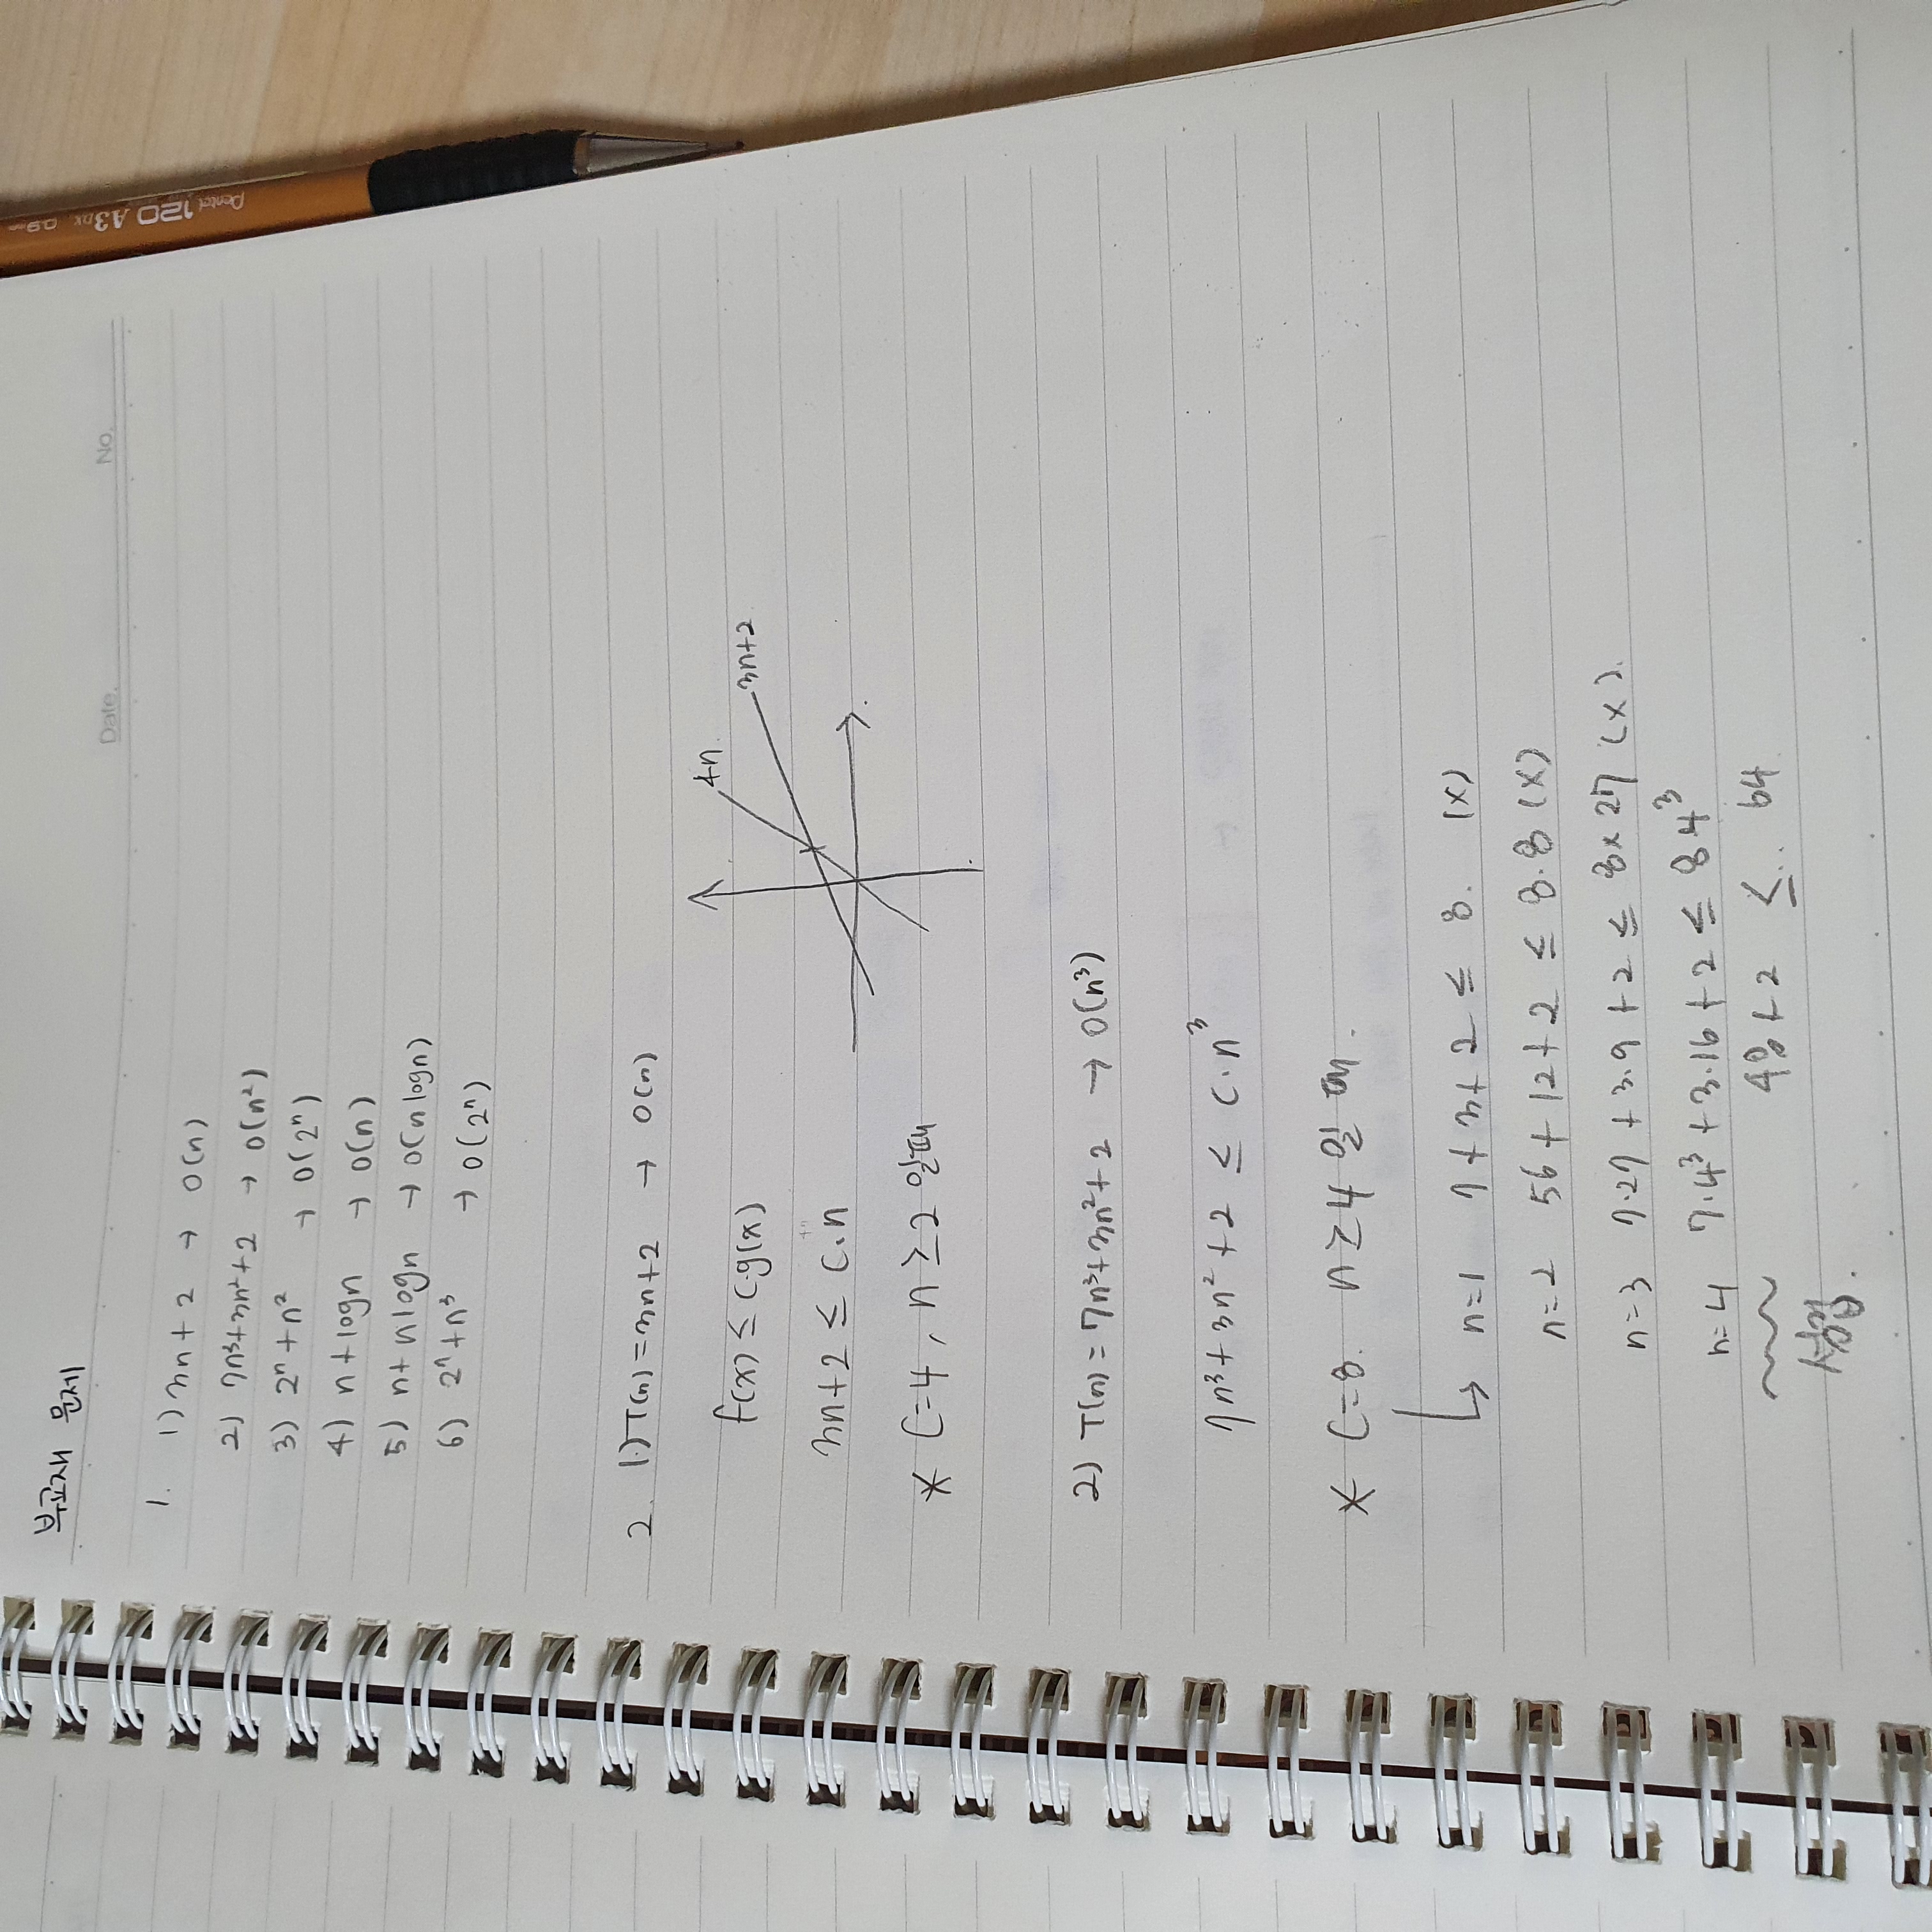 부교재 문제
Date. No.
1. 1) 3n+2 → O(n)
2) 7n³+3n²+2 → O(n²)
3) 2ⁿ+n² → O(2ⁿ)
4) n+logn → O(n)
5) n+nlogn → O(n logn)
6) 2ⁿ+n³ → O(2ⁿ)
2. 1.) T(n)=3n+2 → O(n)
4n.
f(x) ≤ C·g(x)
3n+2
3n+2 ≤ C·n
* C=4, n≥2 일때
2) T(n)=7n³+3n²+2 → O(n³)
7n³+3n²+2 ≤ C·n³
* C=8. n≥4 일 때.
↳ n=1 7+3+2 ≤ 8. (x)
n=2 56+12+2 ≤ 8.8 (x)
n=3 7·27+3.9+2 ≤ 8x27 (x).
n=4 7·4³+3·16+2 ≤ 8 4³
48+2 ≤.. 64
성립.
Pentel 120 A3DX 0.9mm